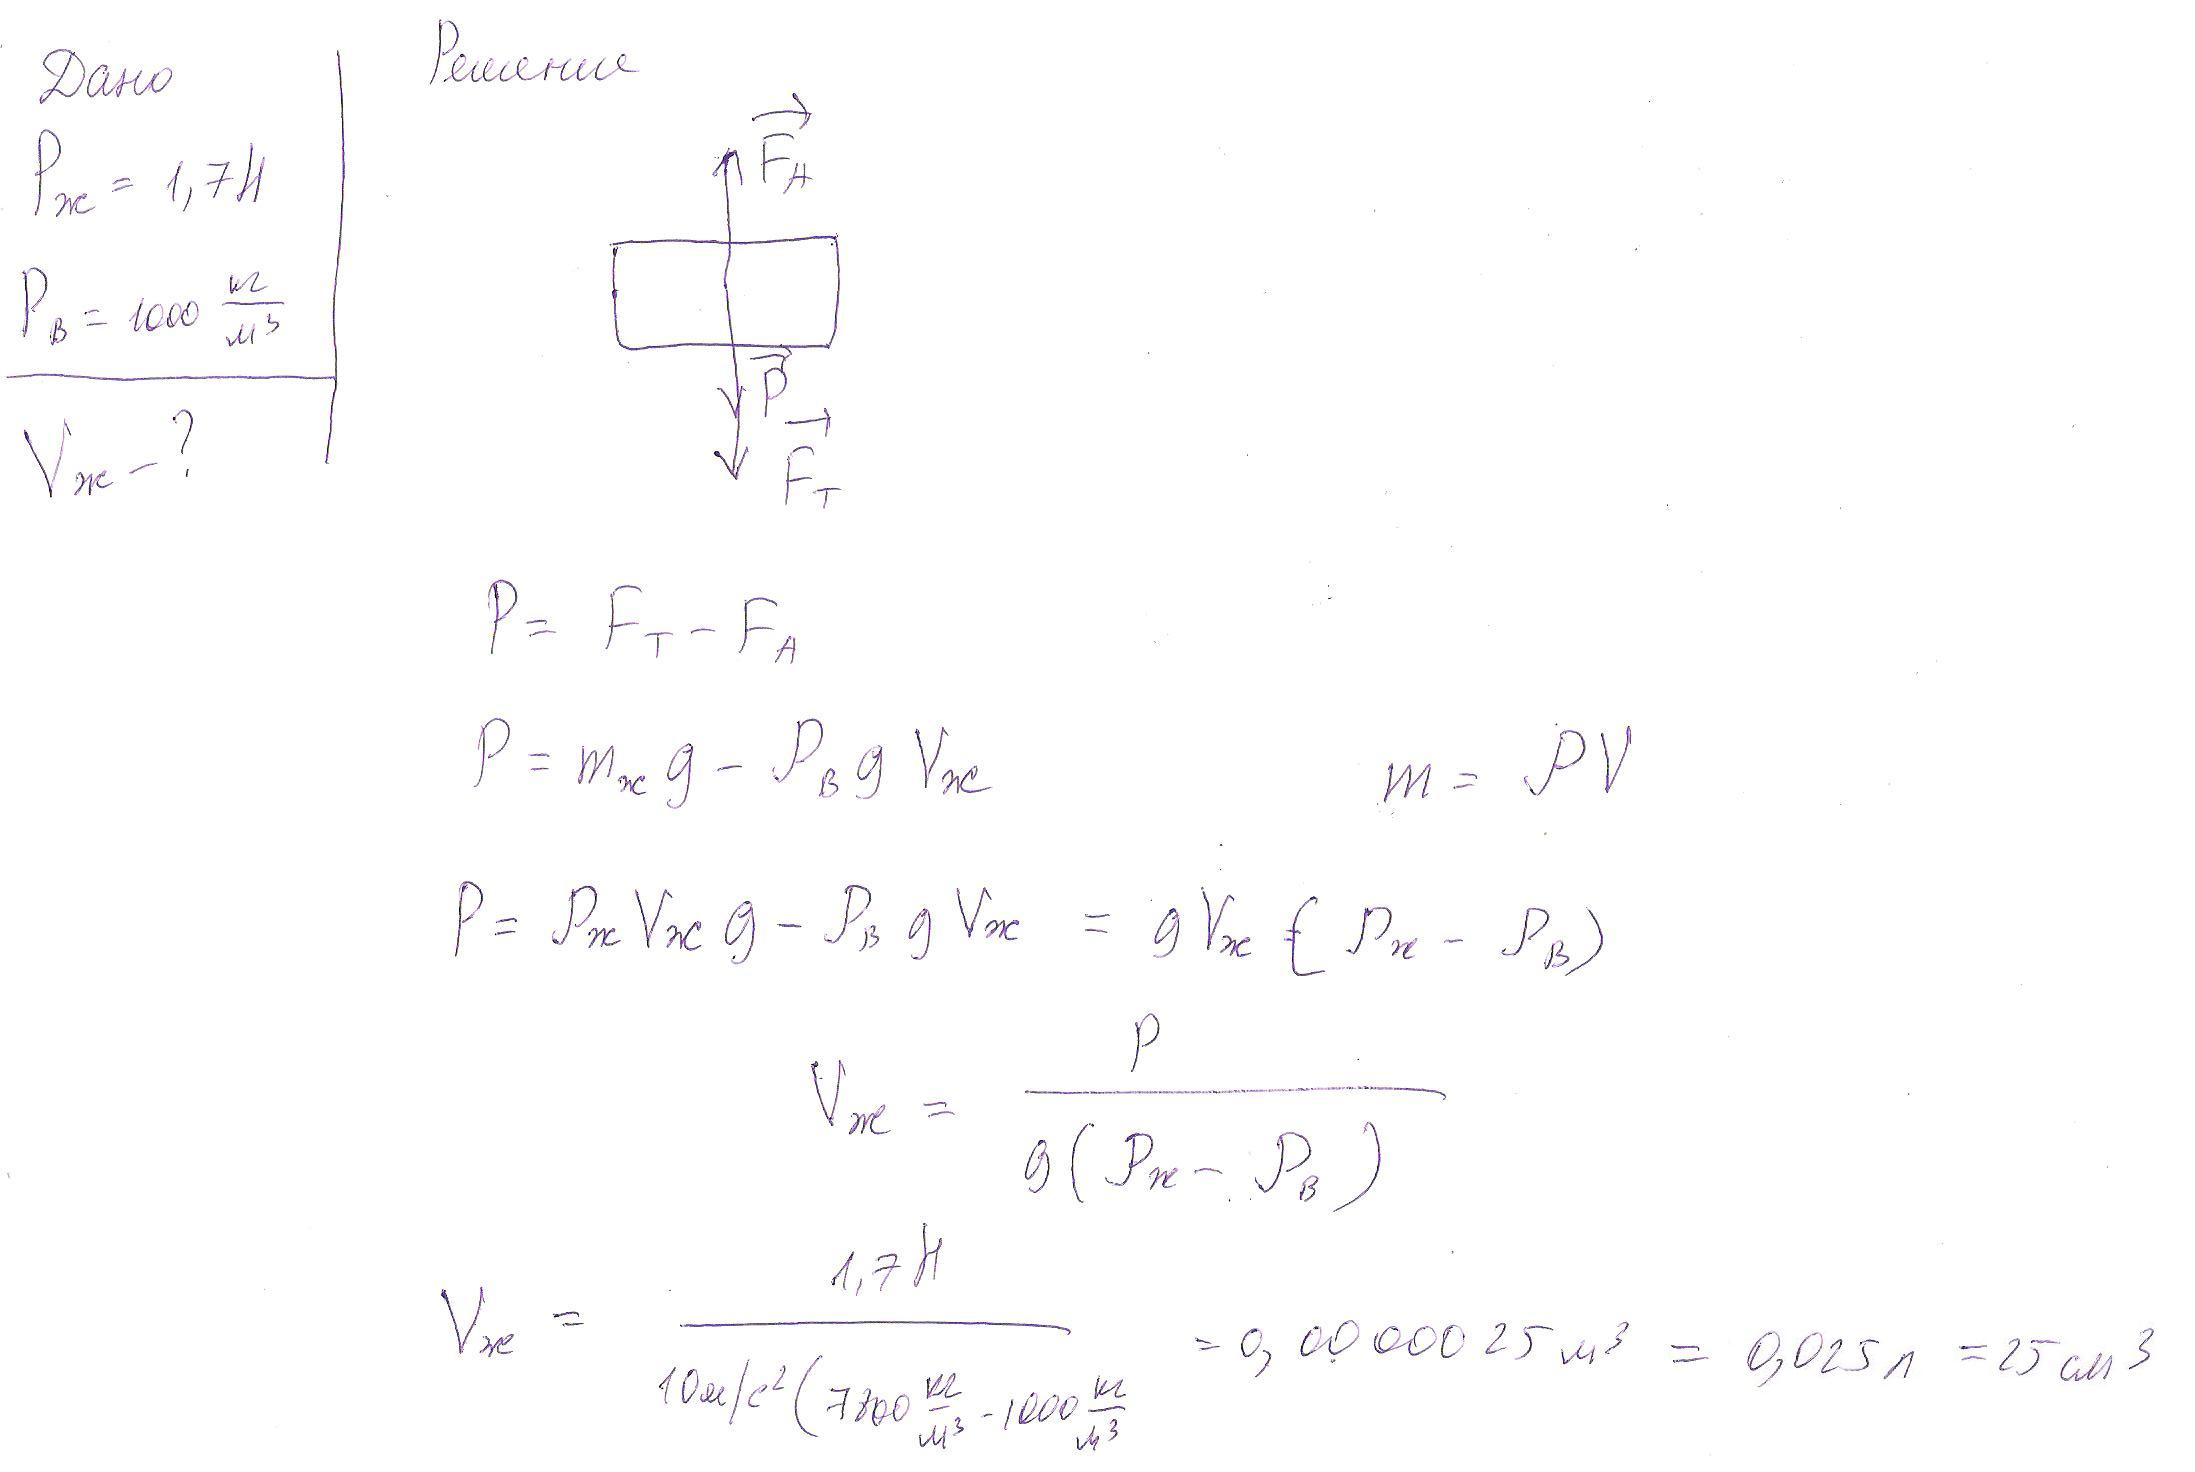 Дано
Pж = 1,7Н
ρв = 1000 кг/м³
Vж - ?
Решение
Fₐ
P
Fт
P = Fт - Fₐ
P = mж g - ρв g Vж
m = ρV
P = ρж Vж g - ρв g Vж = g Vж (ρж - ρв)
Vж = P / g(ρж - ρв)
Vж = 1,7Н / 10м/с² (7800 кг/м³ - 1000 кг/м³ = 0,0000025 м³ = 0,025 л = 25 см³